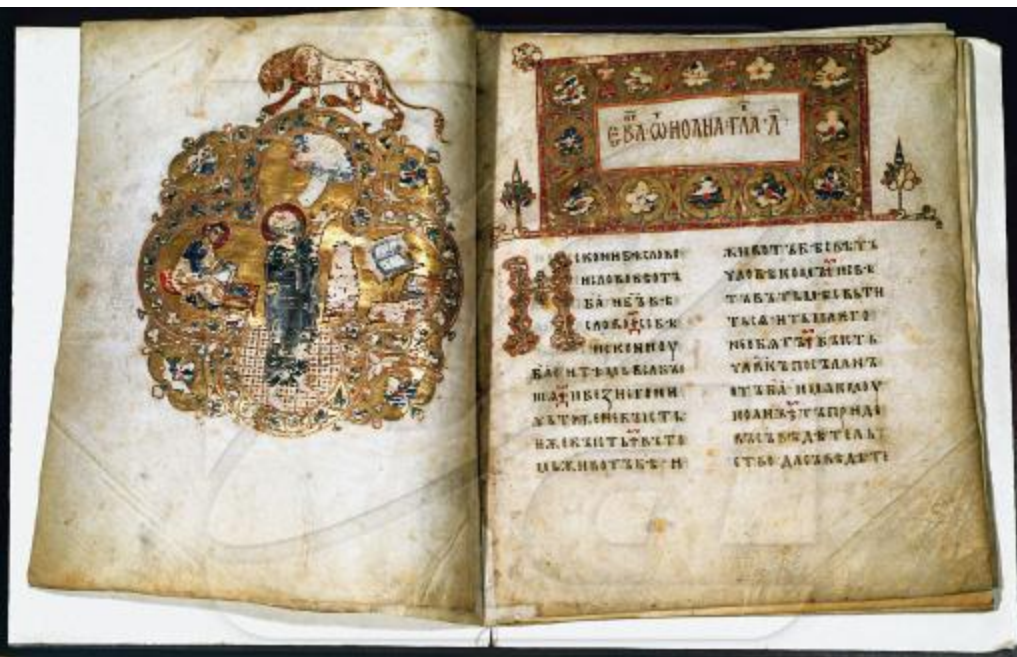 ЕВА·Ѿ ИОАНА·ГЛА·А҃·
ИСКОНИ БѢ СЛОВО
И СЛОВО БѢ ОТЪ
БА҃ И БЪ҃ БѢ
СЛОВО СЕ БѢ
ИСКОНИ ОУ
БА҃ И ТѢМЬ ВЬСА БЫ
ША И БЕЗ НЕГО НИ
ЧЬТОЖЕ НЕ БЫСТЬ
ЕЖЕ БЫСТЬ ВЪ ТО
МЬ ЖИВОТЪ БѢ И
ЖИВОТЪ БѢ СВѢТЪ
ЧЛОВѢКОМЪ И СВѢ
ТЪ ВЪ ТЬМѢ СВЬТИ
ТЬ СѦ И ТЬМА ѤГО
НЕ ОБѦТЪ БЫСТЬ
ЧЛ҃КЪ ПОСЪЛАНЪ
ОТЪ БА҃ ИМѦ ѤМОУ
ИОАНЪ ТЪ ПРИДЕ
ВЪ СЪВѢДѢТЕЛЬ
СТВО ДА СЪВѢДѢТЕ